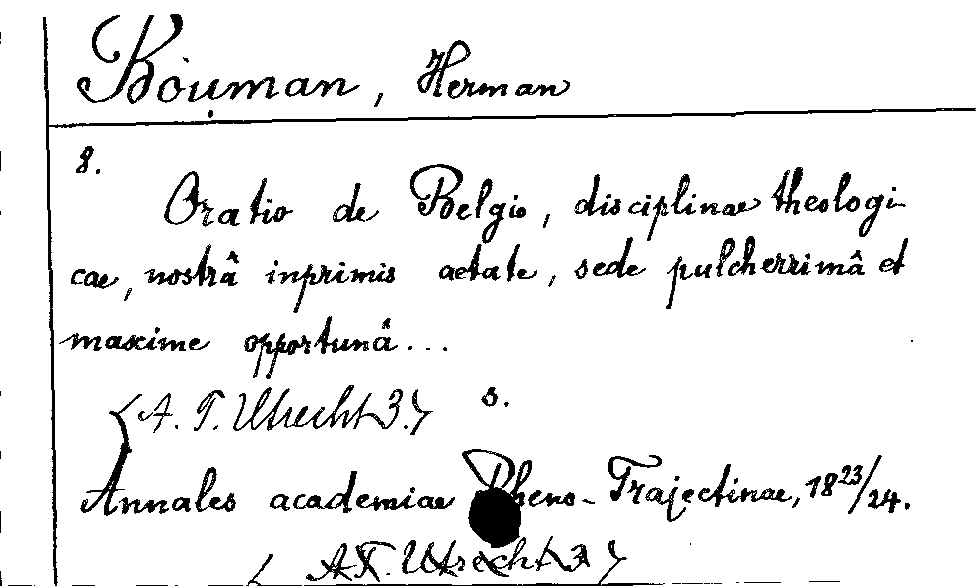 Bouman, Herman
8.
Oratio de Belgio, disciplinae theologi-
cae, nostrâ inprimis aetate, sede pulcherrimâ et
maxime opportunâ...
(A. T. Utrecht 3.) s.
Annales academiae Rheno-Trajectinae, 1823/24.
(A.T. Utrecht 3)